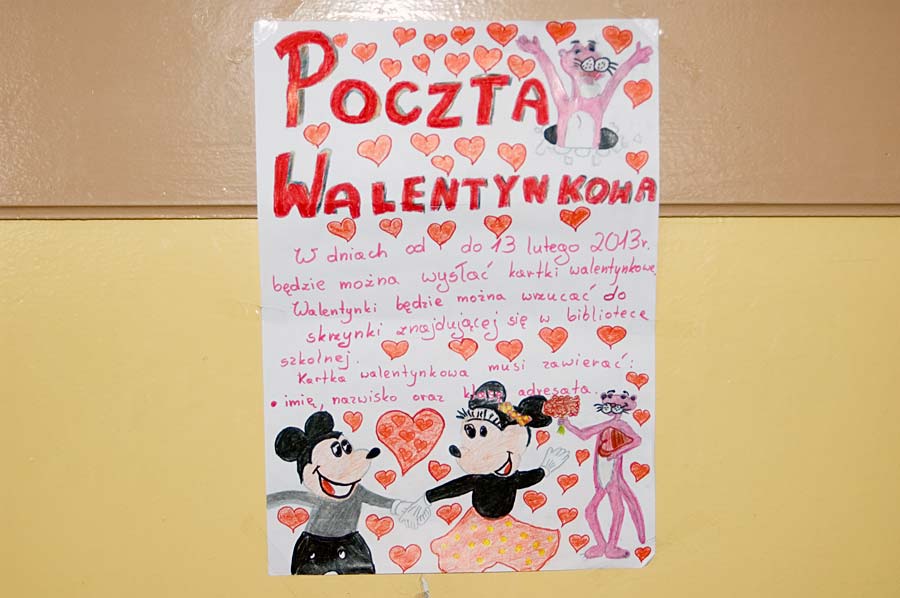 POCZTA
WALENTYNKOWA
W dniach od do 13 lutego 2013r.
będzie można wysłać kartki walentynkowe
Walentynki będzie można wrzucać do
skrzynki znajdującej się w bibliotece
szkolnej.
Kartka walentynkowa musi zawierać:
• imię, nazwisko oraz klasę adresata.